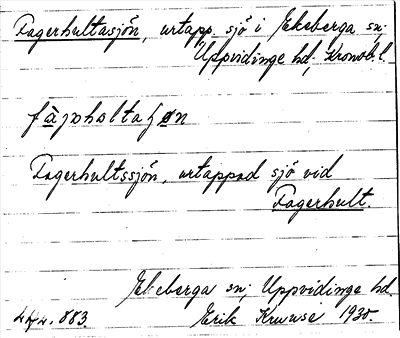 Fagerhultasjön, urtapp. sjö i Ekeberga sn;
Uppvidinge hd; Kronob. l.
Fagerhultssjön, urtappad sjö vid
Fagerhult.
Ekeberga sn; Uppvidinge hd.
883. Erik Kruuse 1930